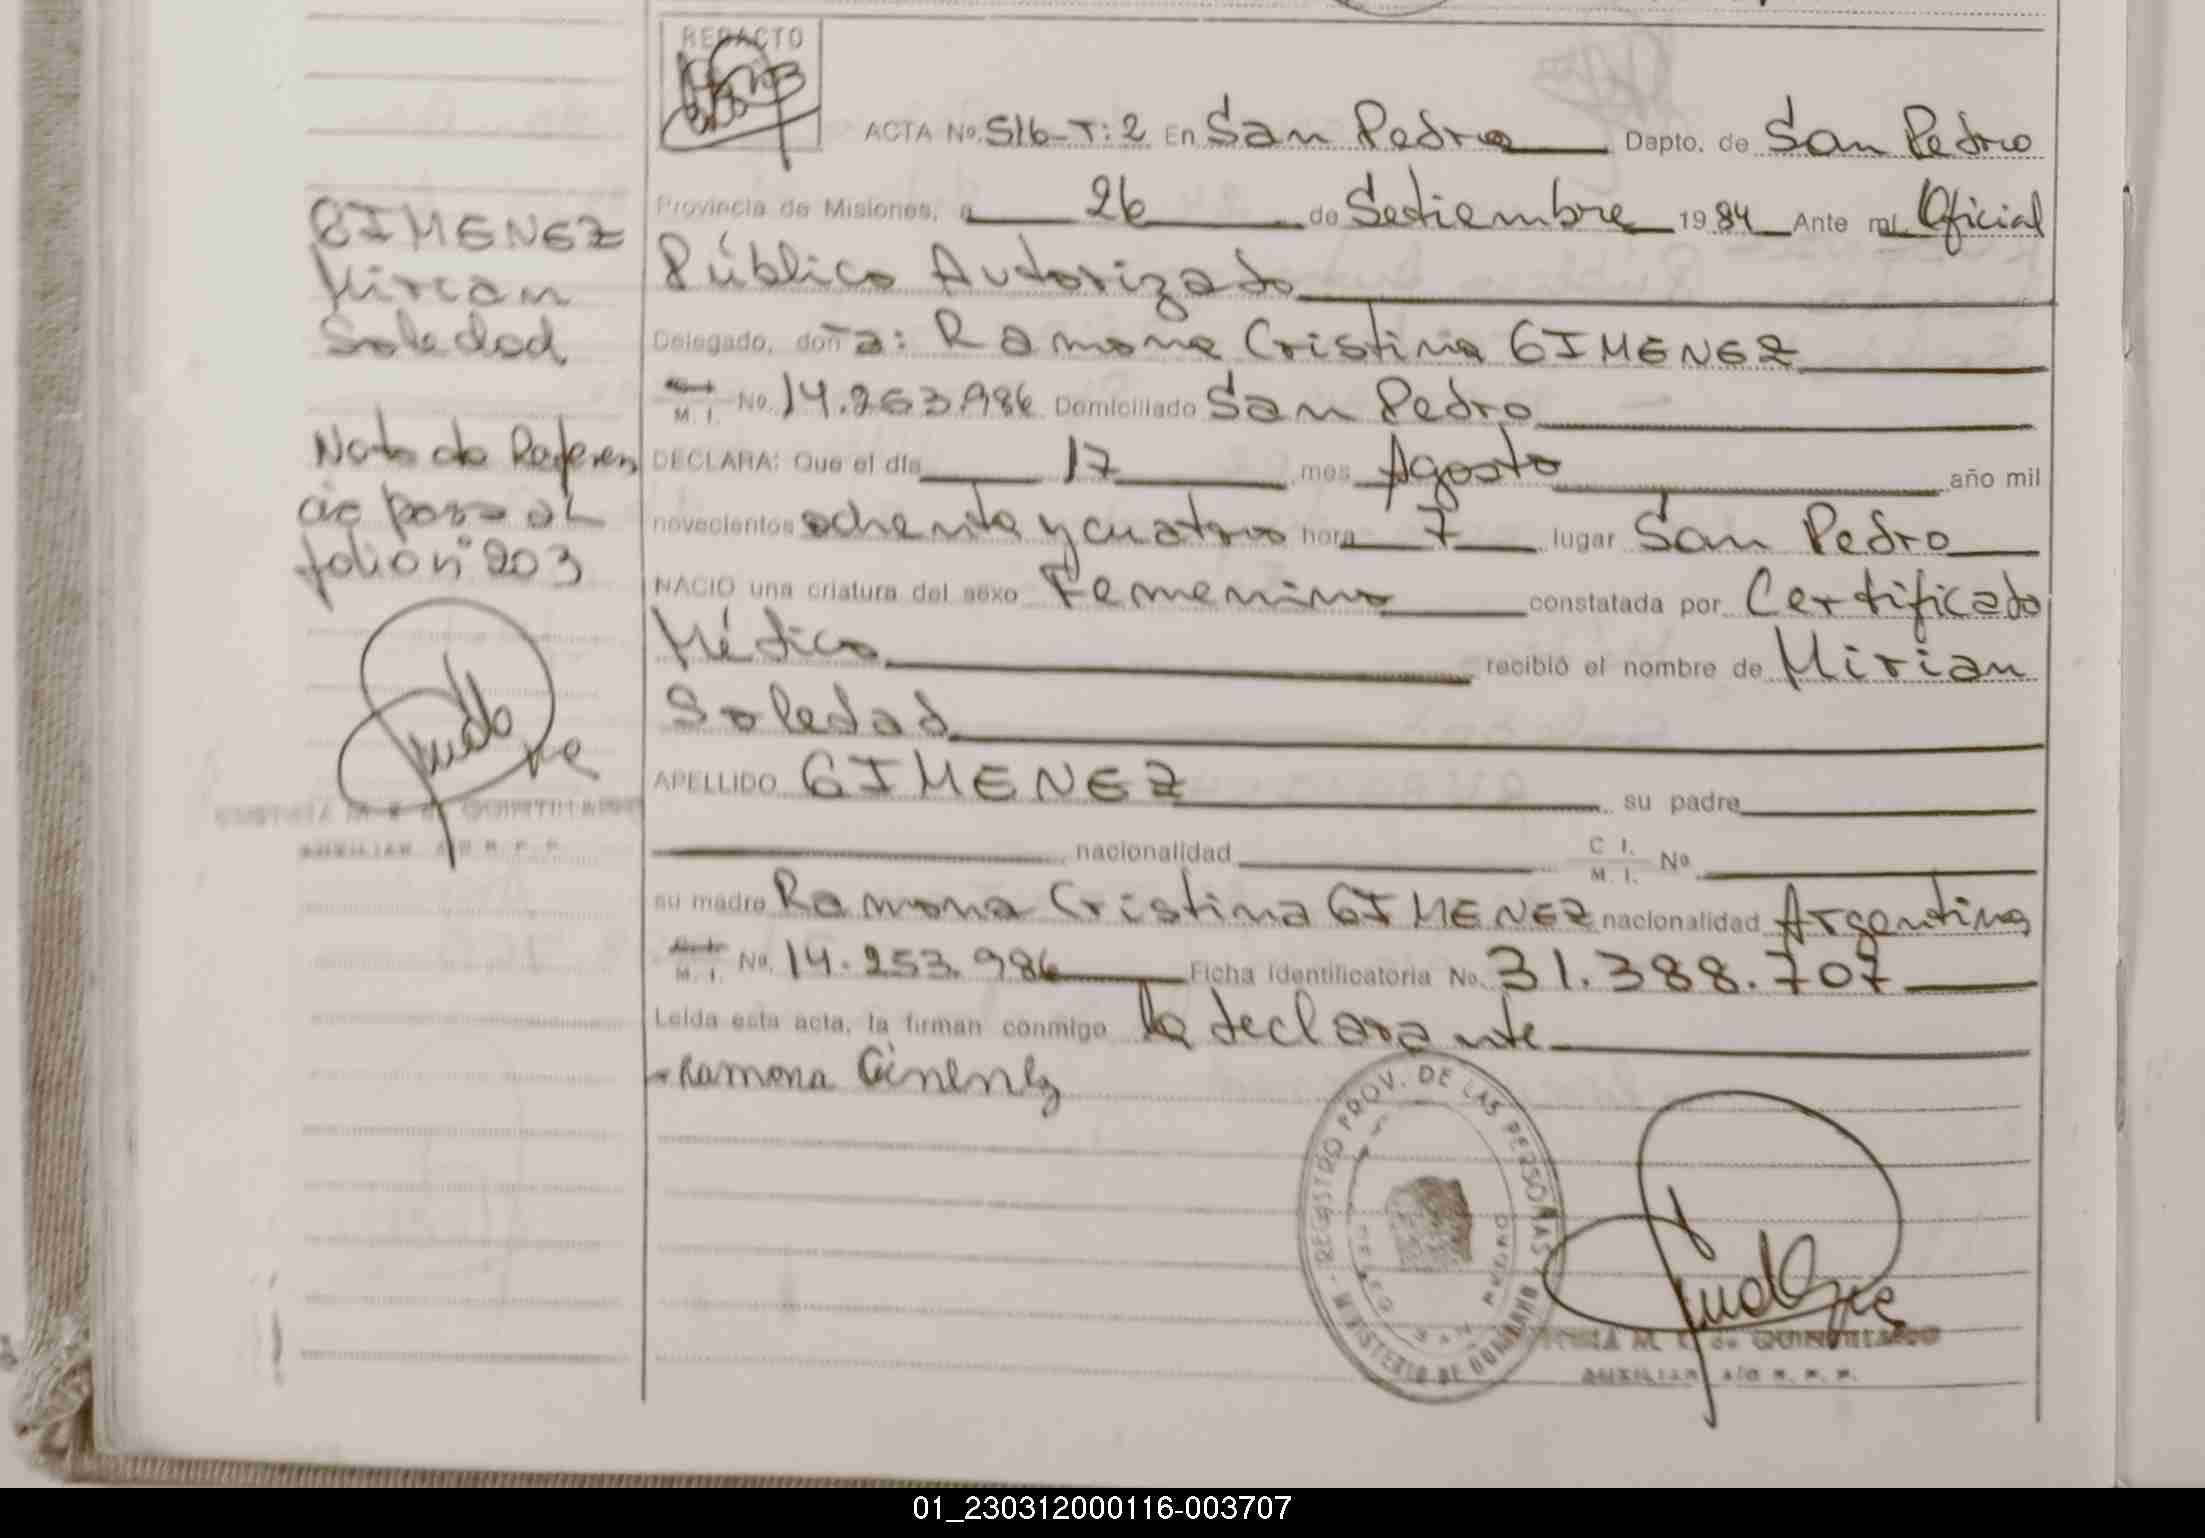 REDACTO
ACTA No. 516-T:2 En San Pedro Dapto. de San Pedro
Provincia de Misiones, a 26 de Setiembre 1984 Ante mi Oficial
Público Autorizado
Delegado, doña: Ramona Cristina GIMENEZ
M. I. No. 14.253.986 Domiciliado San Pedro
DECLARA: Que el día 17 mes Agosto año mil
novecientos ochenta y cuatro hora 7 lugar San Pedro
NACIO una criatura del sexo Femenino constatada por Certificado
Médico recibió el nombre de Mirian
Soledad
APELLIDO GIMENEZ su padre
nacionalidad C I. M. I. No.
su madre Ramona Cristina GIMENEZ nacionalidad Argentina
M. I. No. 14.253.986 Ficha Identificatoria No. 31.388.707
Leída esta acta, la firman conmigo la declarante
Ramona Gimenez
GIMENEZ
Mirian
Soledad
Nota de Referen
cia pasa al
folio nº 203
M. E. de QUINTILIANO
AUXILIAR A/C R. P. P.
REGISTRO PROV. DE LAS PERSONAS
MINISTERIO DE GOBIERNO
SAN PEDRO
M. E. de QUINTILIANO
AUXILIAR a/c R. P. P.
01_230312000116-003707